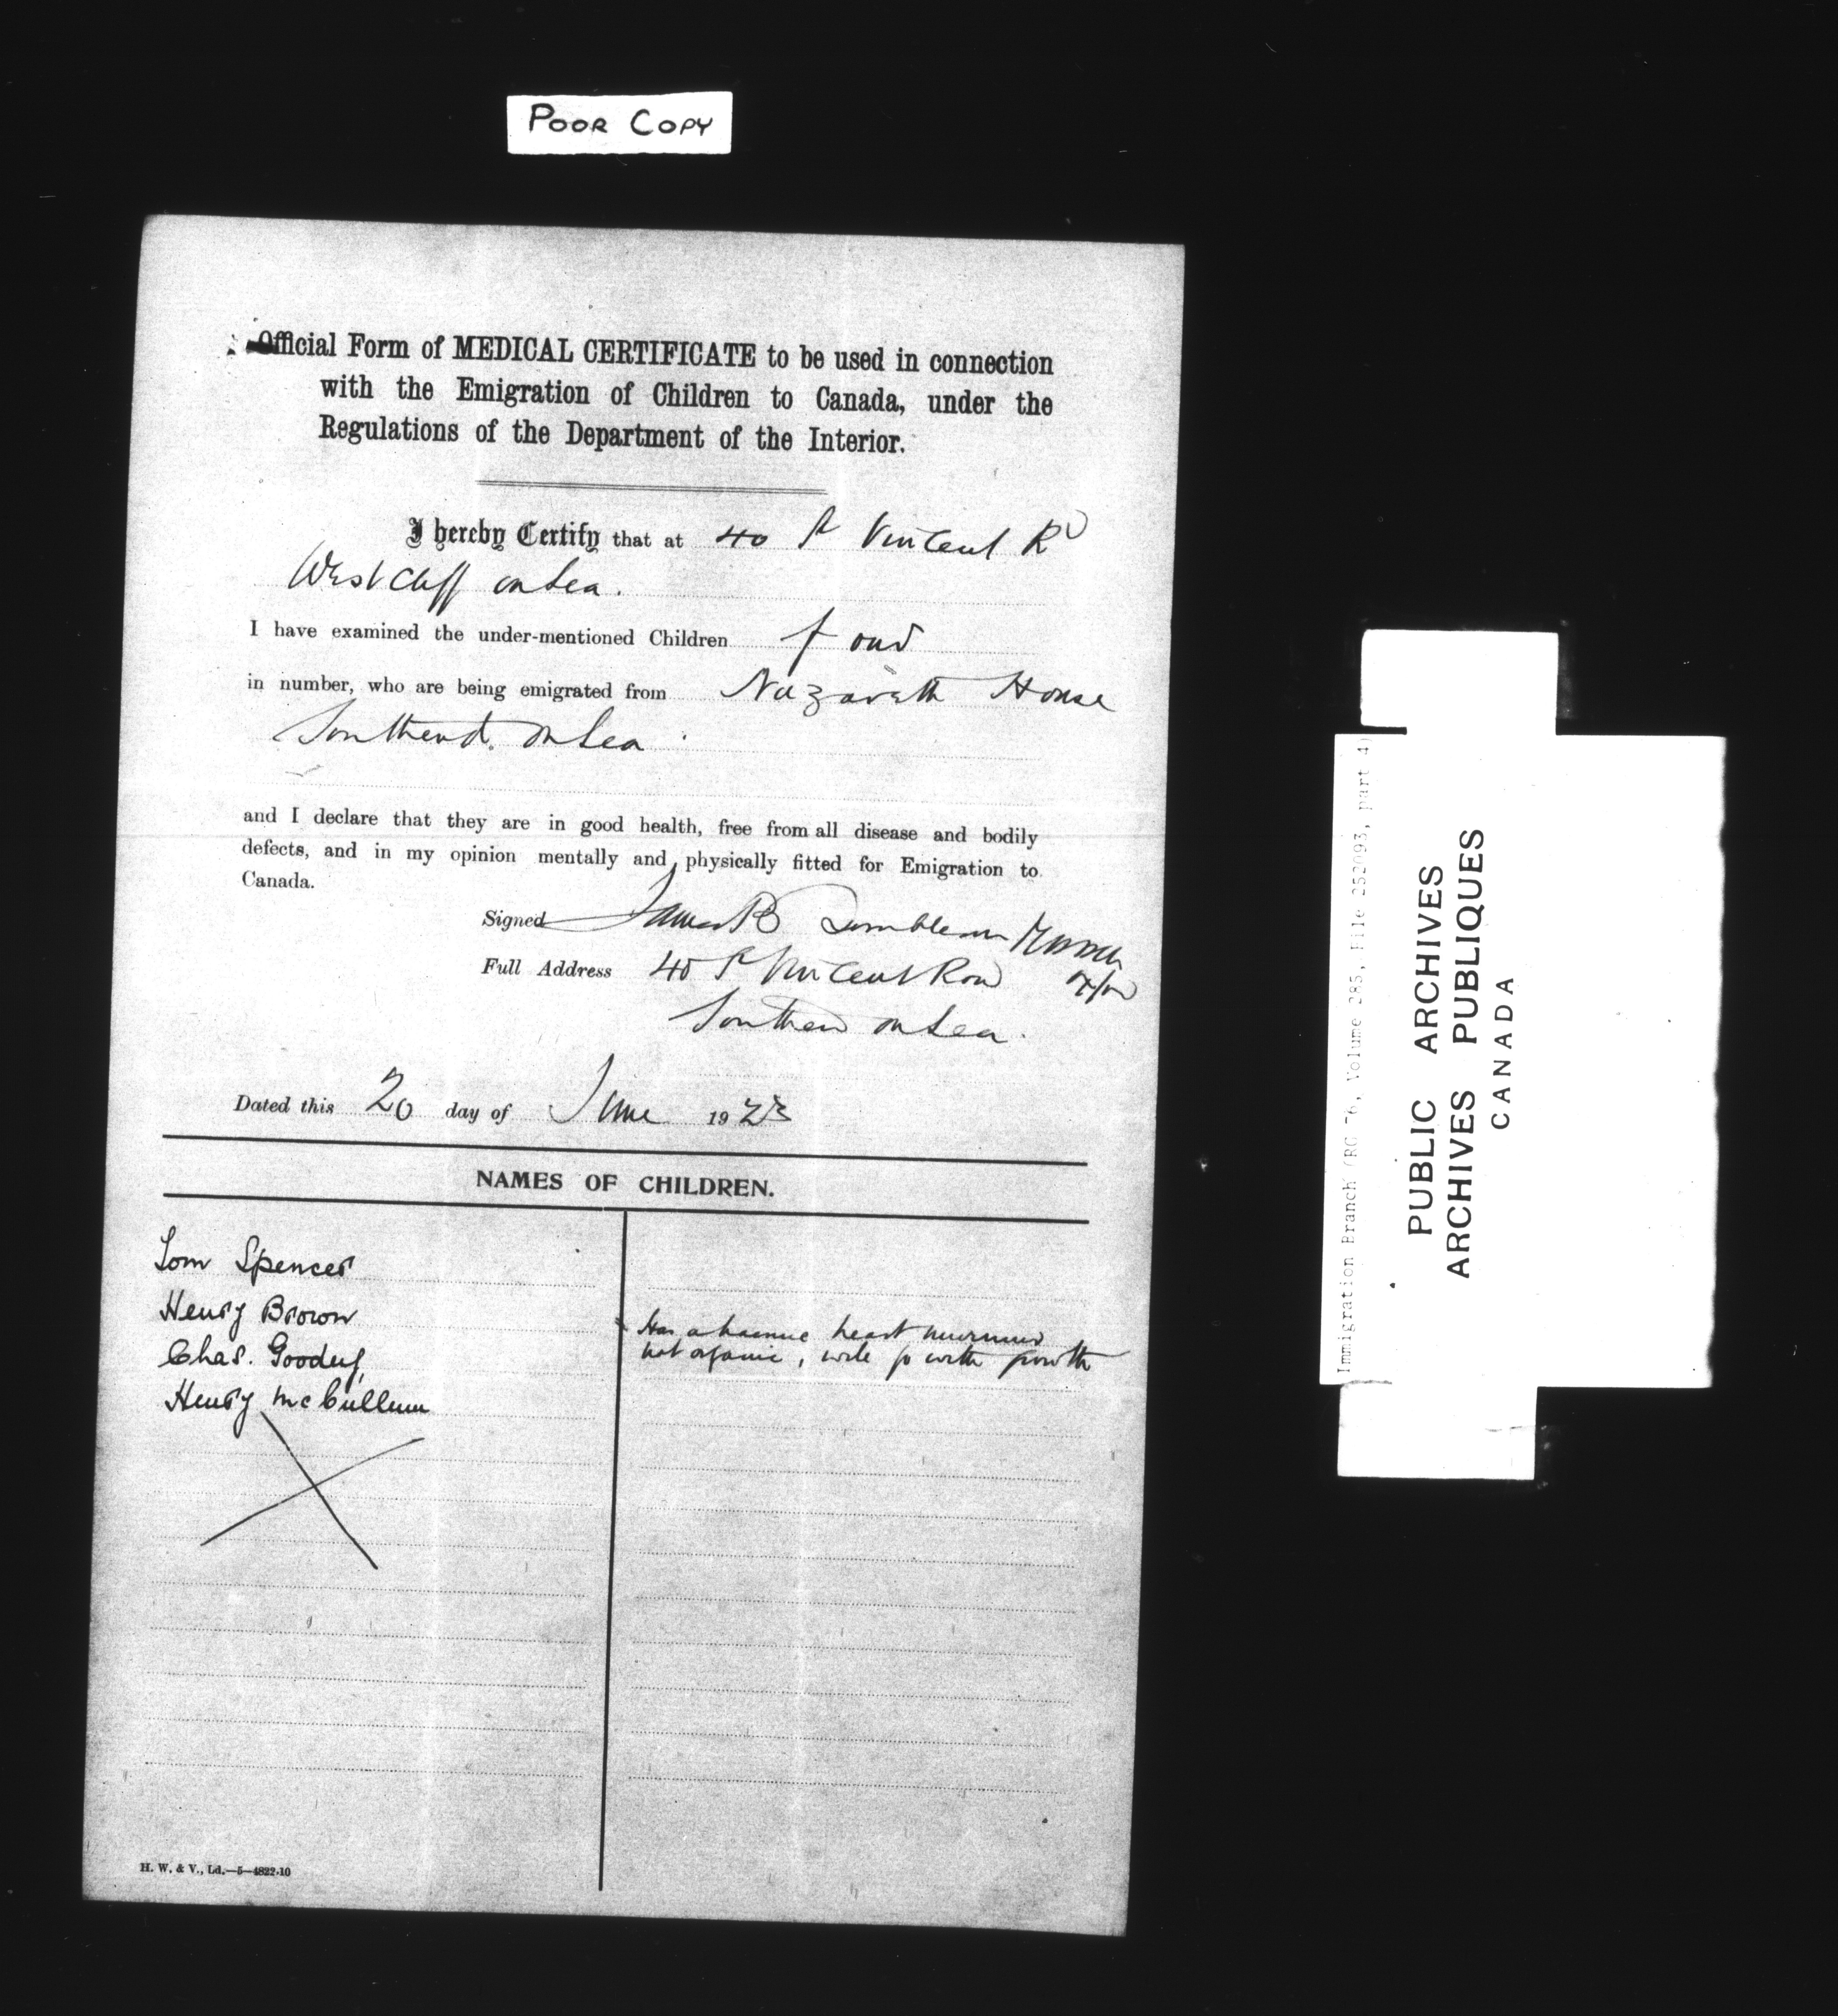 POOR COPY
Official Form of MEDICAL CERTIFICATE to be used in connection
with the Emigration of Children to Canada, under the
Regulations of the Department of the Interior.
I hereby Certify that at 40 St Vincent Rd
Westcliff on Sea.
I have examined the under-mentioned Children four
in number, who are being emigrated from Nazareth House
Southend. on Sea
and I declare that they are in good health, free from all disease and bodily
defects, and in my opinion mentally and physically fitted for Emigration to
Canada.
Signed James B
Full Address 40 St Vincent Road
Southend on Sea.
Dated this 20 day of June 1923
NAMES OF CHILDREN.
Tom Spencer
Henry Brown
Has a haemic heart murmur
Chas. Goodey
not organic, will go with growth
Henry McCullum
H. W. & V., Ld.—5—4822-10
Immigration Branch (RG 76, Volume 285, File 252093, part 4)
PUBLIC ARCHIVES
ARCHIVES PUBLIQUES
CANADA